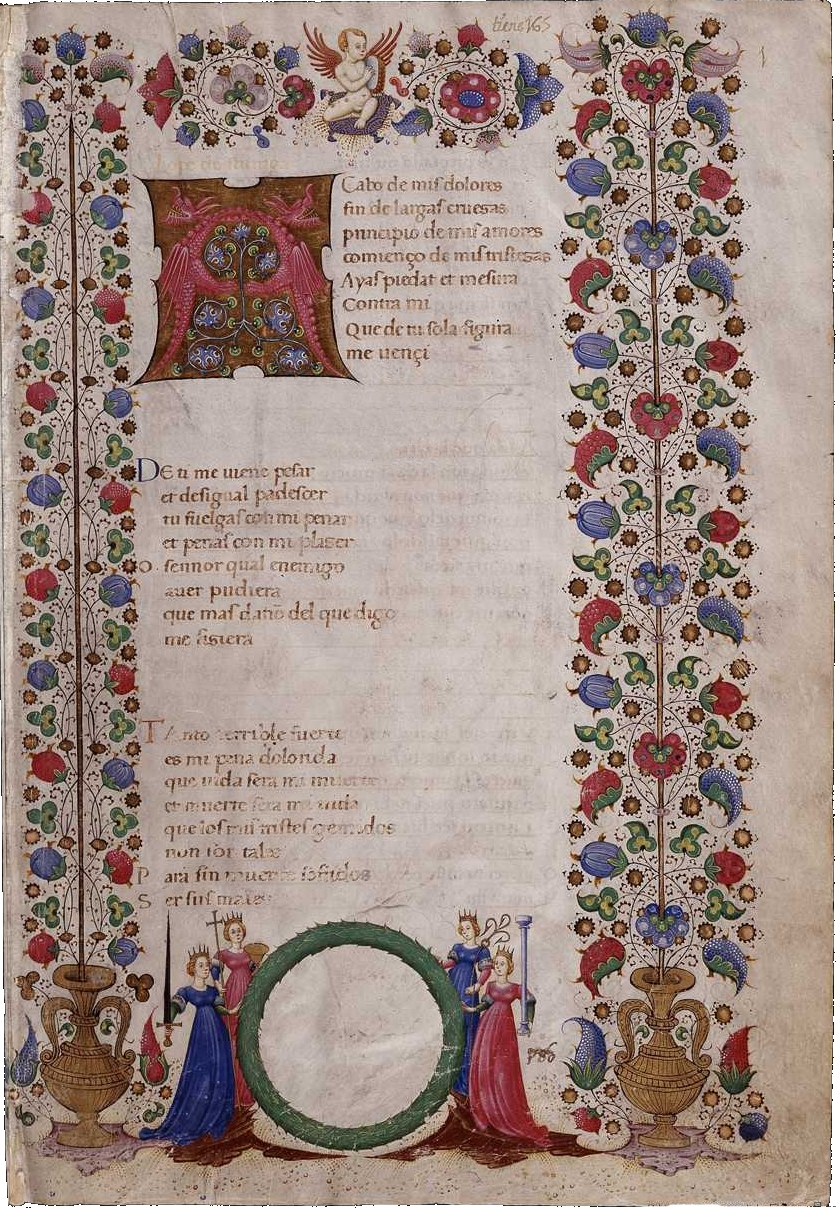 tiene 165
1
Cabo de mis dolores
fin de largas cruesas
principio de mis amores
comienço de mis tristesas
Ayas piedat et mesura
Contra mi
Que de tu sola figura
me uençi
DE ti me uiene pesar
et desigual padesçer
tu fuelgas con mi penar
et penas con mi plaser
o sennor qual enemigo
auer pudiera
que mas daño del que digo
me fisiera
TAnto terrible fuerte
es mi pena dolorida
que uida sera mi muerte
et muerte sera mi uida
que los mis tristes gemidos
non son tales
Para sin muerte
Ser sus males